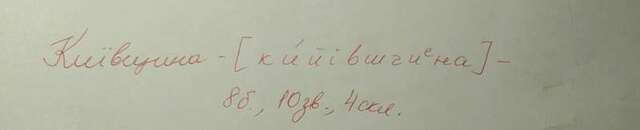 Київщина - [к и́ й і в ш ч иᵉ н а] -
8б., 10зв., 4скл.